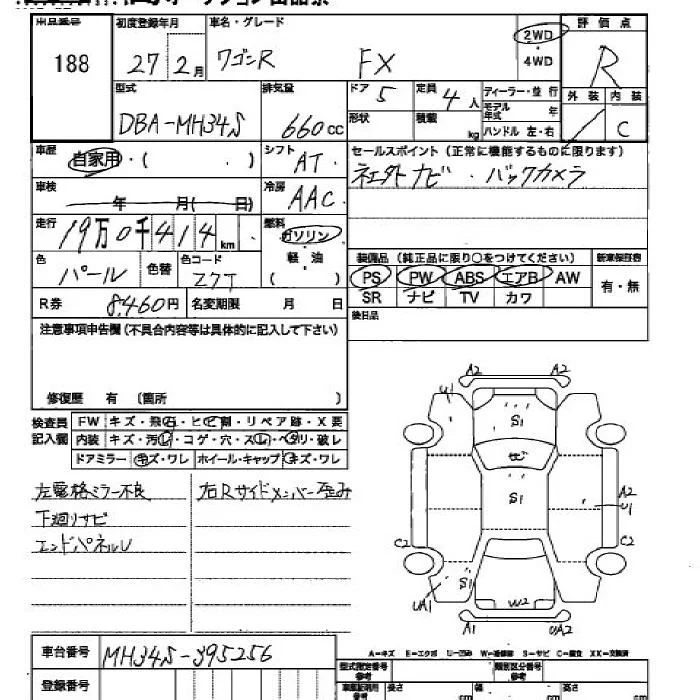 188
初度登録年月
27 2月
車名・グレード
ワゴンR FX
2WD
4WD
評価点
R
型式
DBA-MH34S
排気量
660cc
ドア 5
定員 4人
形状
積載 kg
ディーラー・並行
モデル年式 年
ハンドル 左・右
外装 内装
C
車歴
自家用・( . )
シフト
AT
車検
年 月( 日)
冷房
AAC
走行
19万0千414km
燃料
ガソリン
軽油
( )
色
パール
色替
色コード
Z7T
R券 8,460円
名変期限 月 日
セールスポイント(正常に機能するものに限ります)
社外ナビ・バックカメラ
装備品(純正品に限り○をつけてください)
新車保証書
PS PW ABS エアB AW
SR ナビ TV カワ
有・無
後日品
注意事項申告欄(不具合内容等は具体的に記入して下さい)
修復歴 有 (箇所 )
検査員記入欄
FW キズ・飛石・ヒビ割・リペア跡・X要
内装 キズ・汚レ・コゲ・穴・スレ・ヘタリ・破レ
ドアミラー キズ・ワレ ホイール・キャップ キズ・ワレ
左電格ミラー不良
下廻りサビ
エンドパネルU
右Rサイドメンバー歪み
A2 A2
U1
S1
ヒビ
S1
A2
U1
C2 C2
S1
UA1
W2
A1 U2
車台番号 MH34S-395256
登録番号
A-キズ E-エクボ U-凹み W-補修跡 S-サビ C-腐食 XX-交換済
型式指定番号 参考
類別区分番号 参考
長さ cm
幅 cm
高さ cm